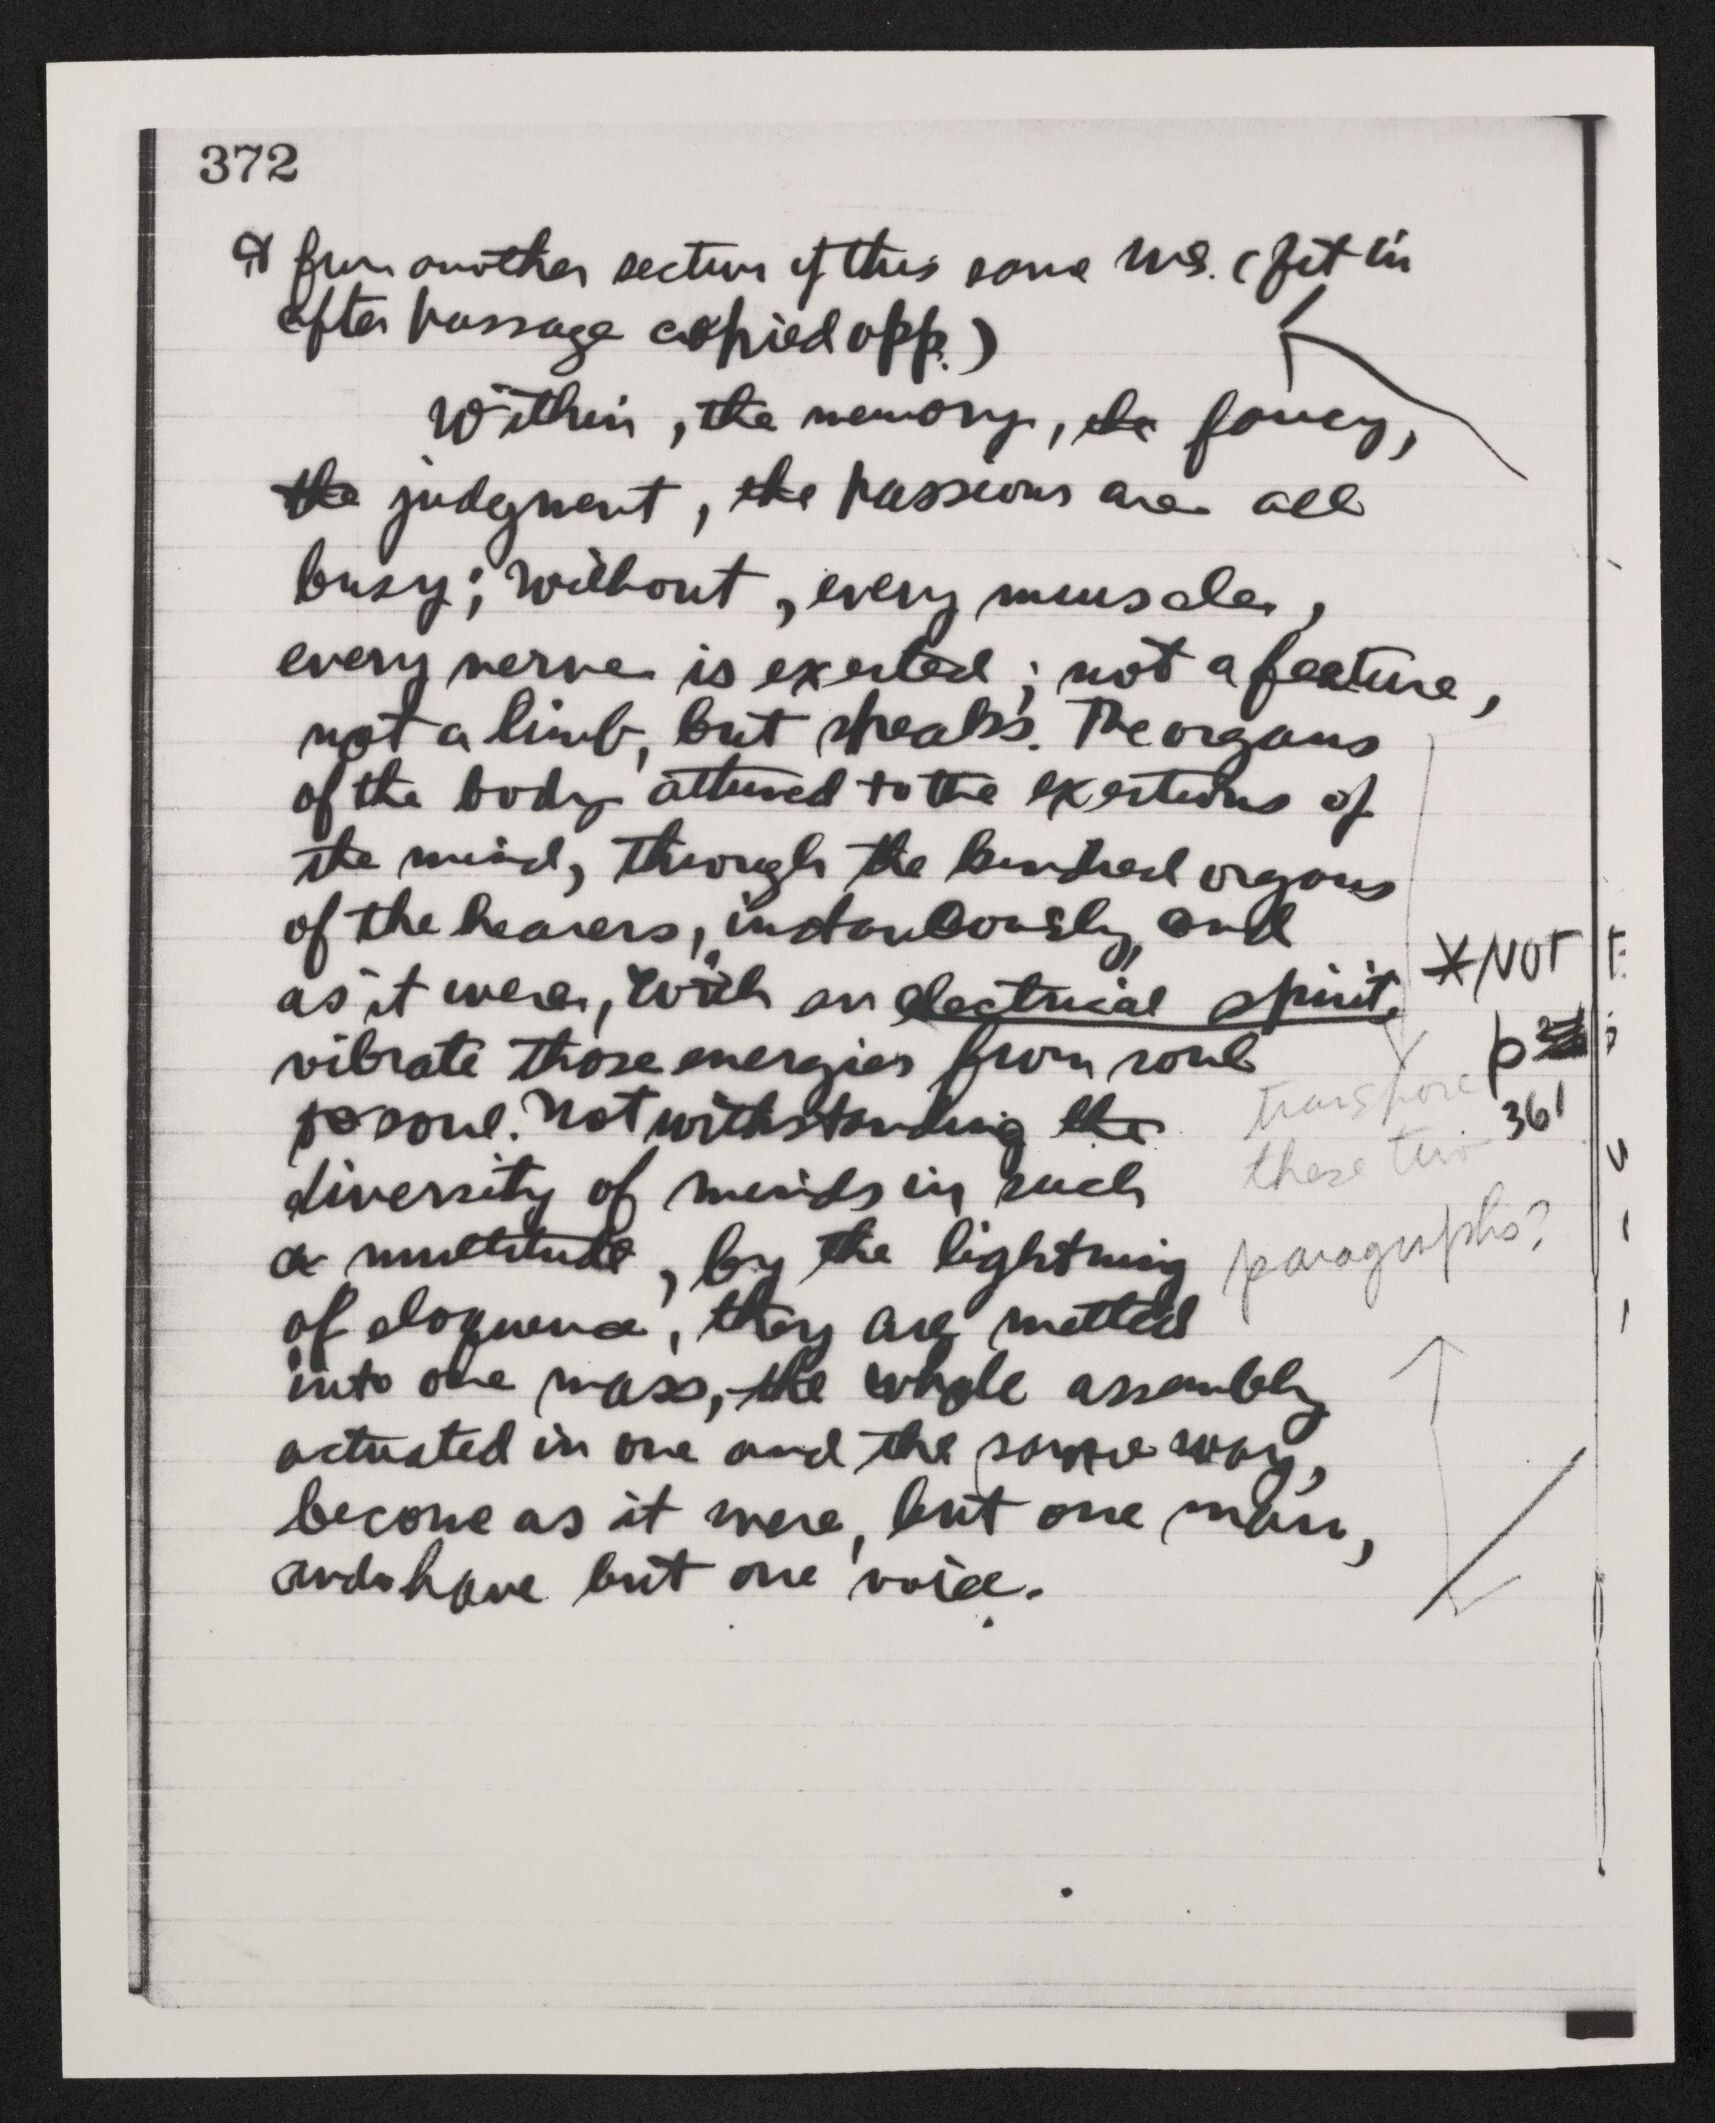 372
from another section of this same MS. (fit in
after passage copied opp.)
Within, the memory, the fancy,
the judgment, the passions are all
busy; without, every muscle,
every nerve is exerted; not a feature,
not a limb, but speaks. The organs
of the body attuned to the exertions of
the mind, through the kindred organs
of the hearers, instantaneously, and
as it were, with an electrical spirit,
vibrate those energies from soul
to soul. Notwithstanding the
diversity of minds in such
a multitude, by the lightning
of eloquence, they are melted
into one mass, the whole assembly
actuated in one and the same way,
become as it were, but one man,
and have but one voice.
*NOT
p
361
transpose
these two
paragraphs?